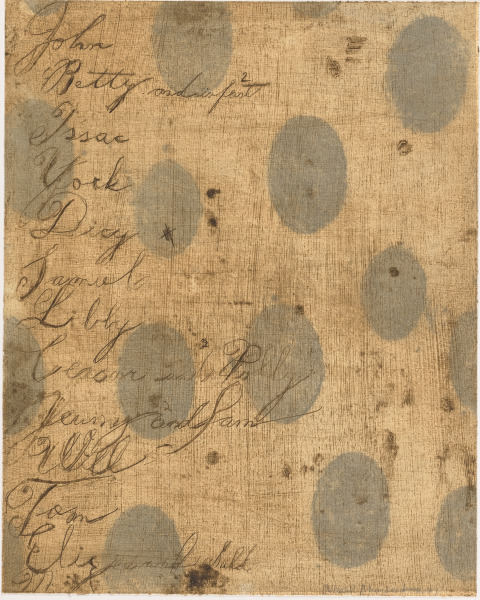 John
Betty and infant 2
Issac
York
Dicy
Samuel
Libby
Polly
Jenny and Sam
Will
Tom
Eliz and child